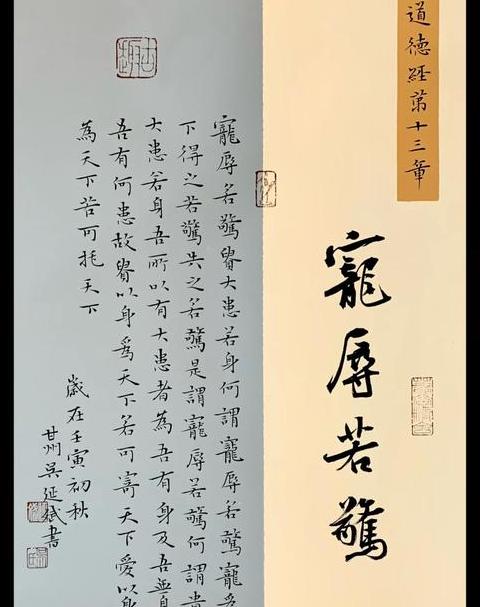 道德經第十三章
寵辱若驚
寵辱若驚貴大患若身何謂寵辱若驚寵為
下得之若驚失之若驚是謂寵辱若驚何謂貴
大患若身吾所以有大患者為吾有身及吾無身
吾有何患故貴以身為天下若可寄天下愛以身
為天下若可托天下
歲在壬寅初秋
甘州吴延斌書